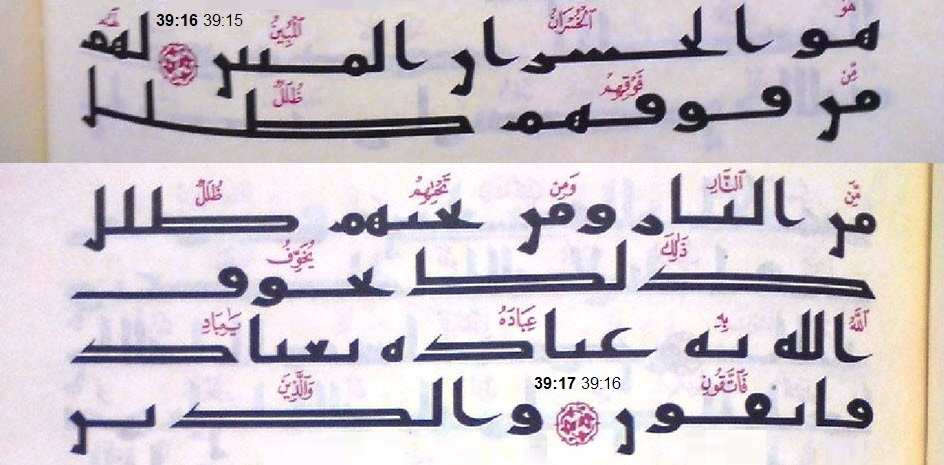 39:16 39:15
هُوَ ٱلْخُسْرَانُ ٱلْمُبِينُ لَهُم
هو الحسرار المبير لهم
مِّن فَوْقِهِمْ ظُلَلٌ
مر فوقهم طلل
مِّنَ ٱلنَّارِ وَمِن تَحْتِهِمْ ظُلَلٌ
مر النار ومر تحتهم طلل
ذَٰلِكَ يُخَوِّفُ
دلك يحوف
ٱللَّهُ بِهِ عِبَادَهُ يَٰعِبَادِ
الله به عباده يعباد
39:17 39:16
فَٱتَّقُونِ وَٱلَّذِينَ
فاتقور والدير